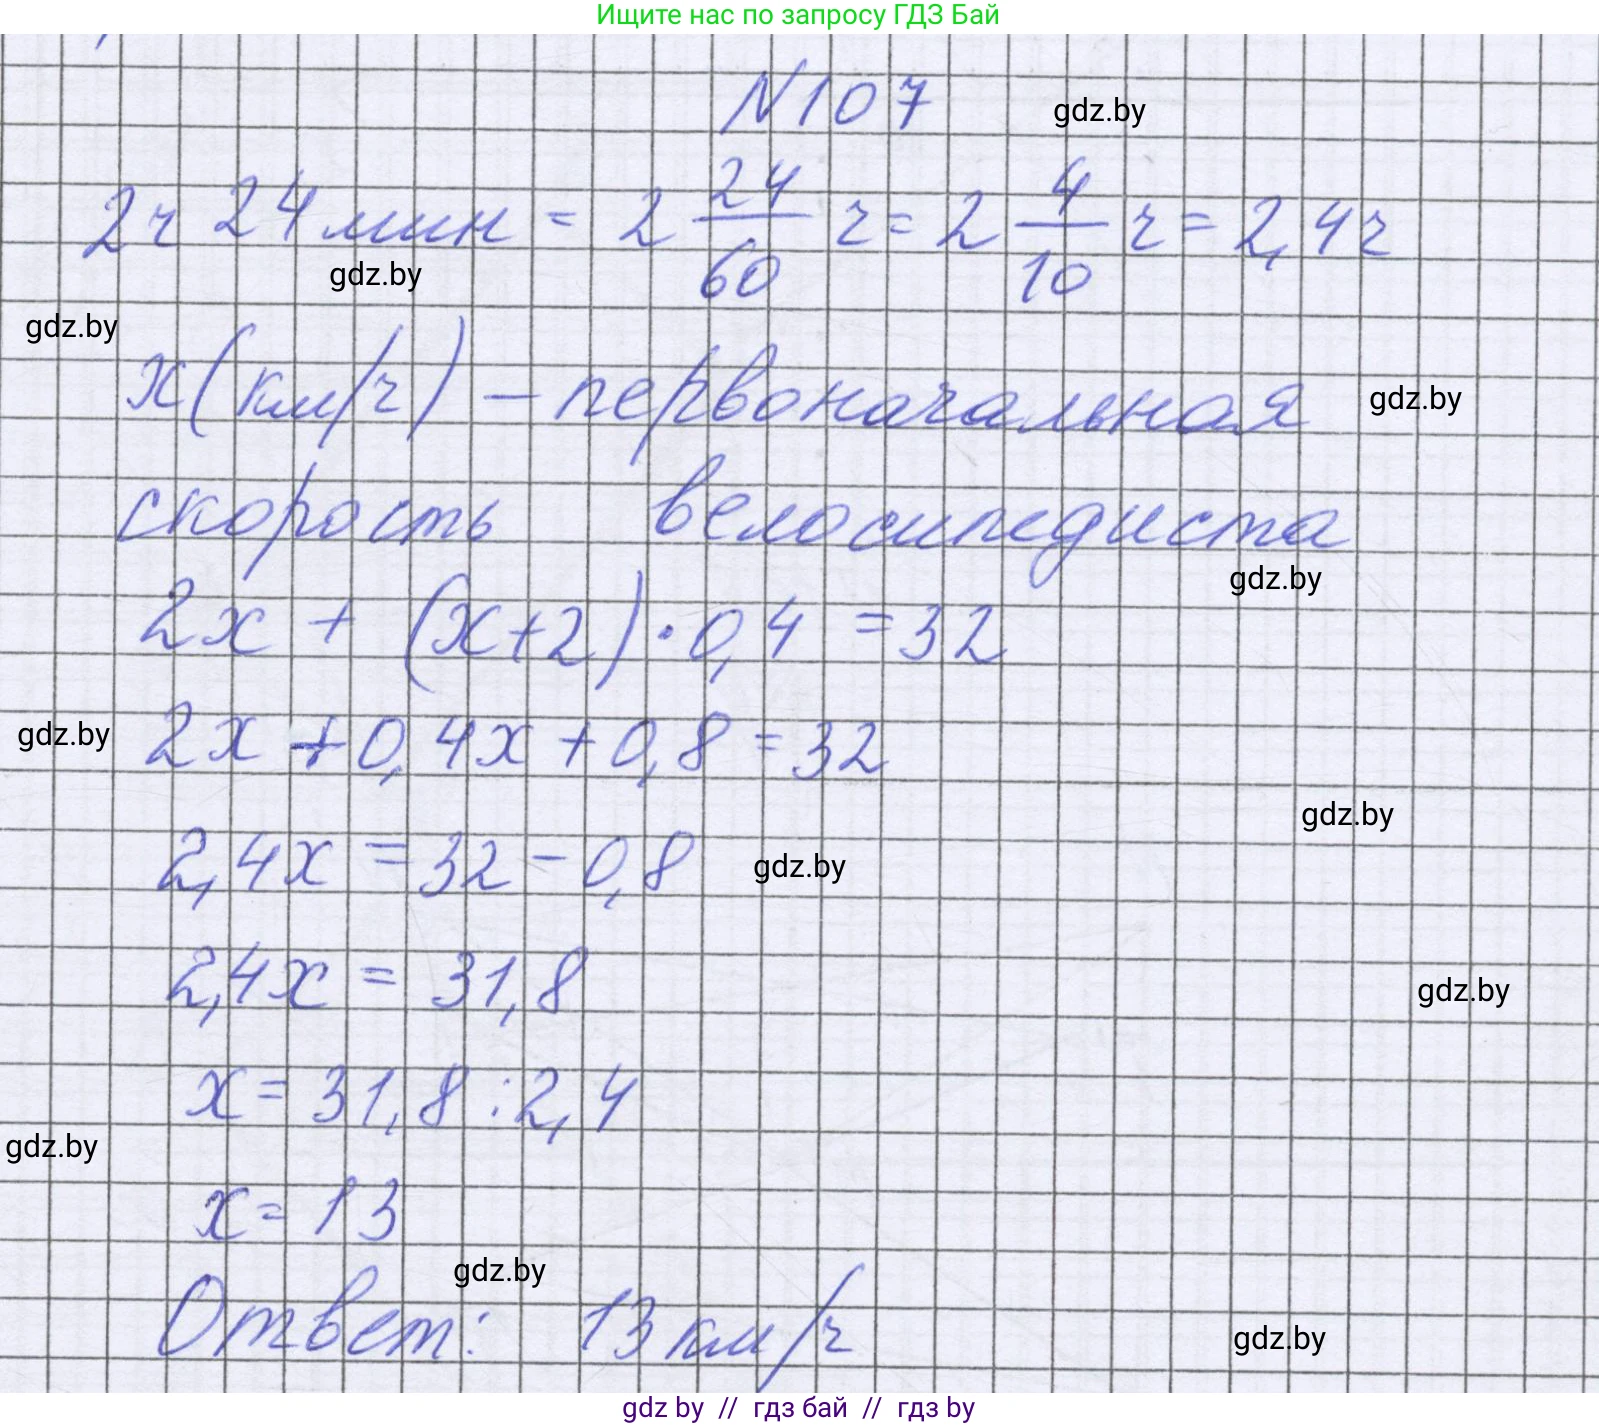 Ищите нас по запросу ГДЗ Бай
N107
gdz.by
2ч 24 мин = 2 24/60 ч = 2 4/10 ч = 2,4ч
gdz.by
gdz.by
x (км/ч) – первоначальная
gdz.by
скорость велосипедиста
gdz.by
2x + (x+2)·0,4 = 32
2x + 0,4x + 0,8 = 32
gdz.by
gdz.by
2,4x = 32 - 0,8
gdz.by
2,4x = 31,8
gdz.by
x = 31,8 : 2,4
gdz.by
x = 13
gdz.by
Ответ: 13 км/ч
gdz.by
gdz by // гдз бай // гдз by